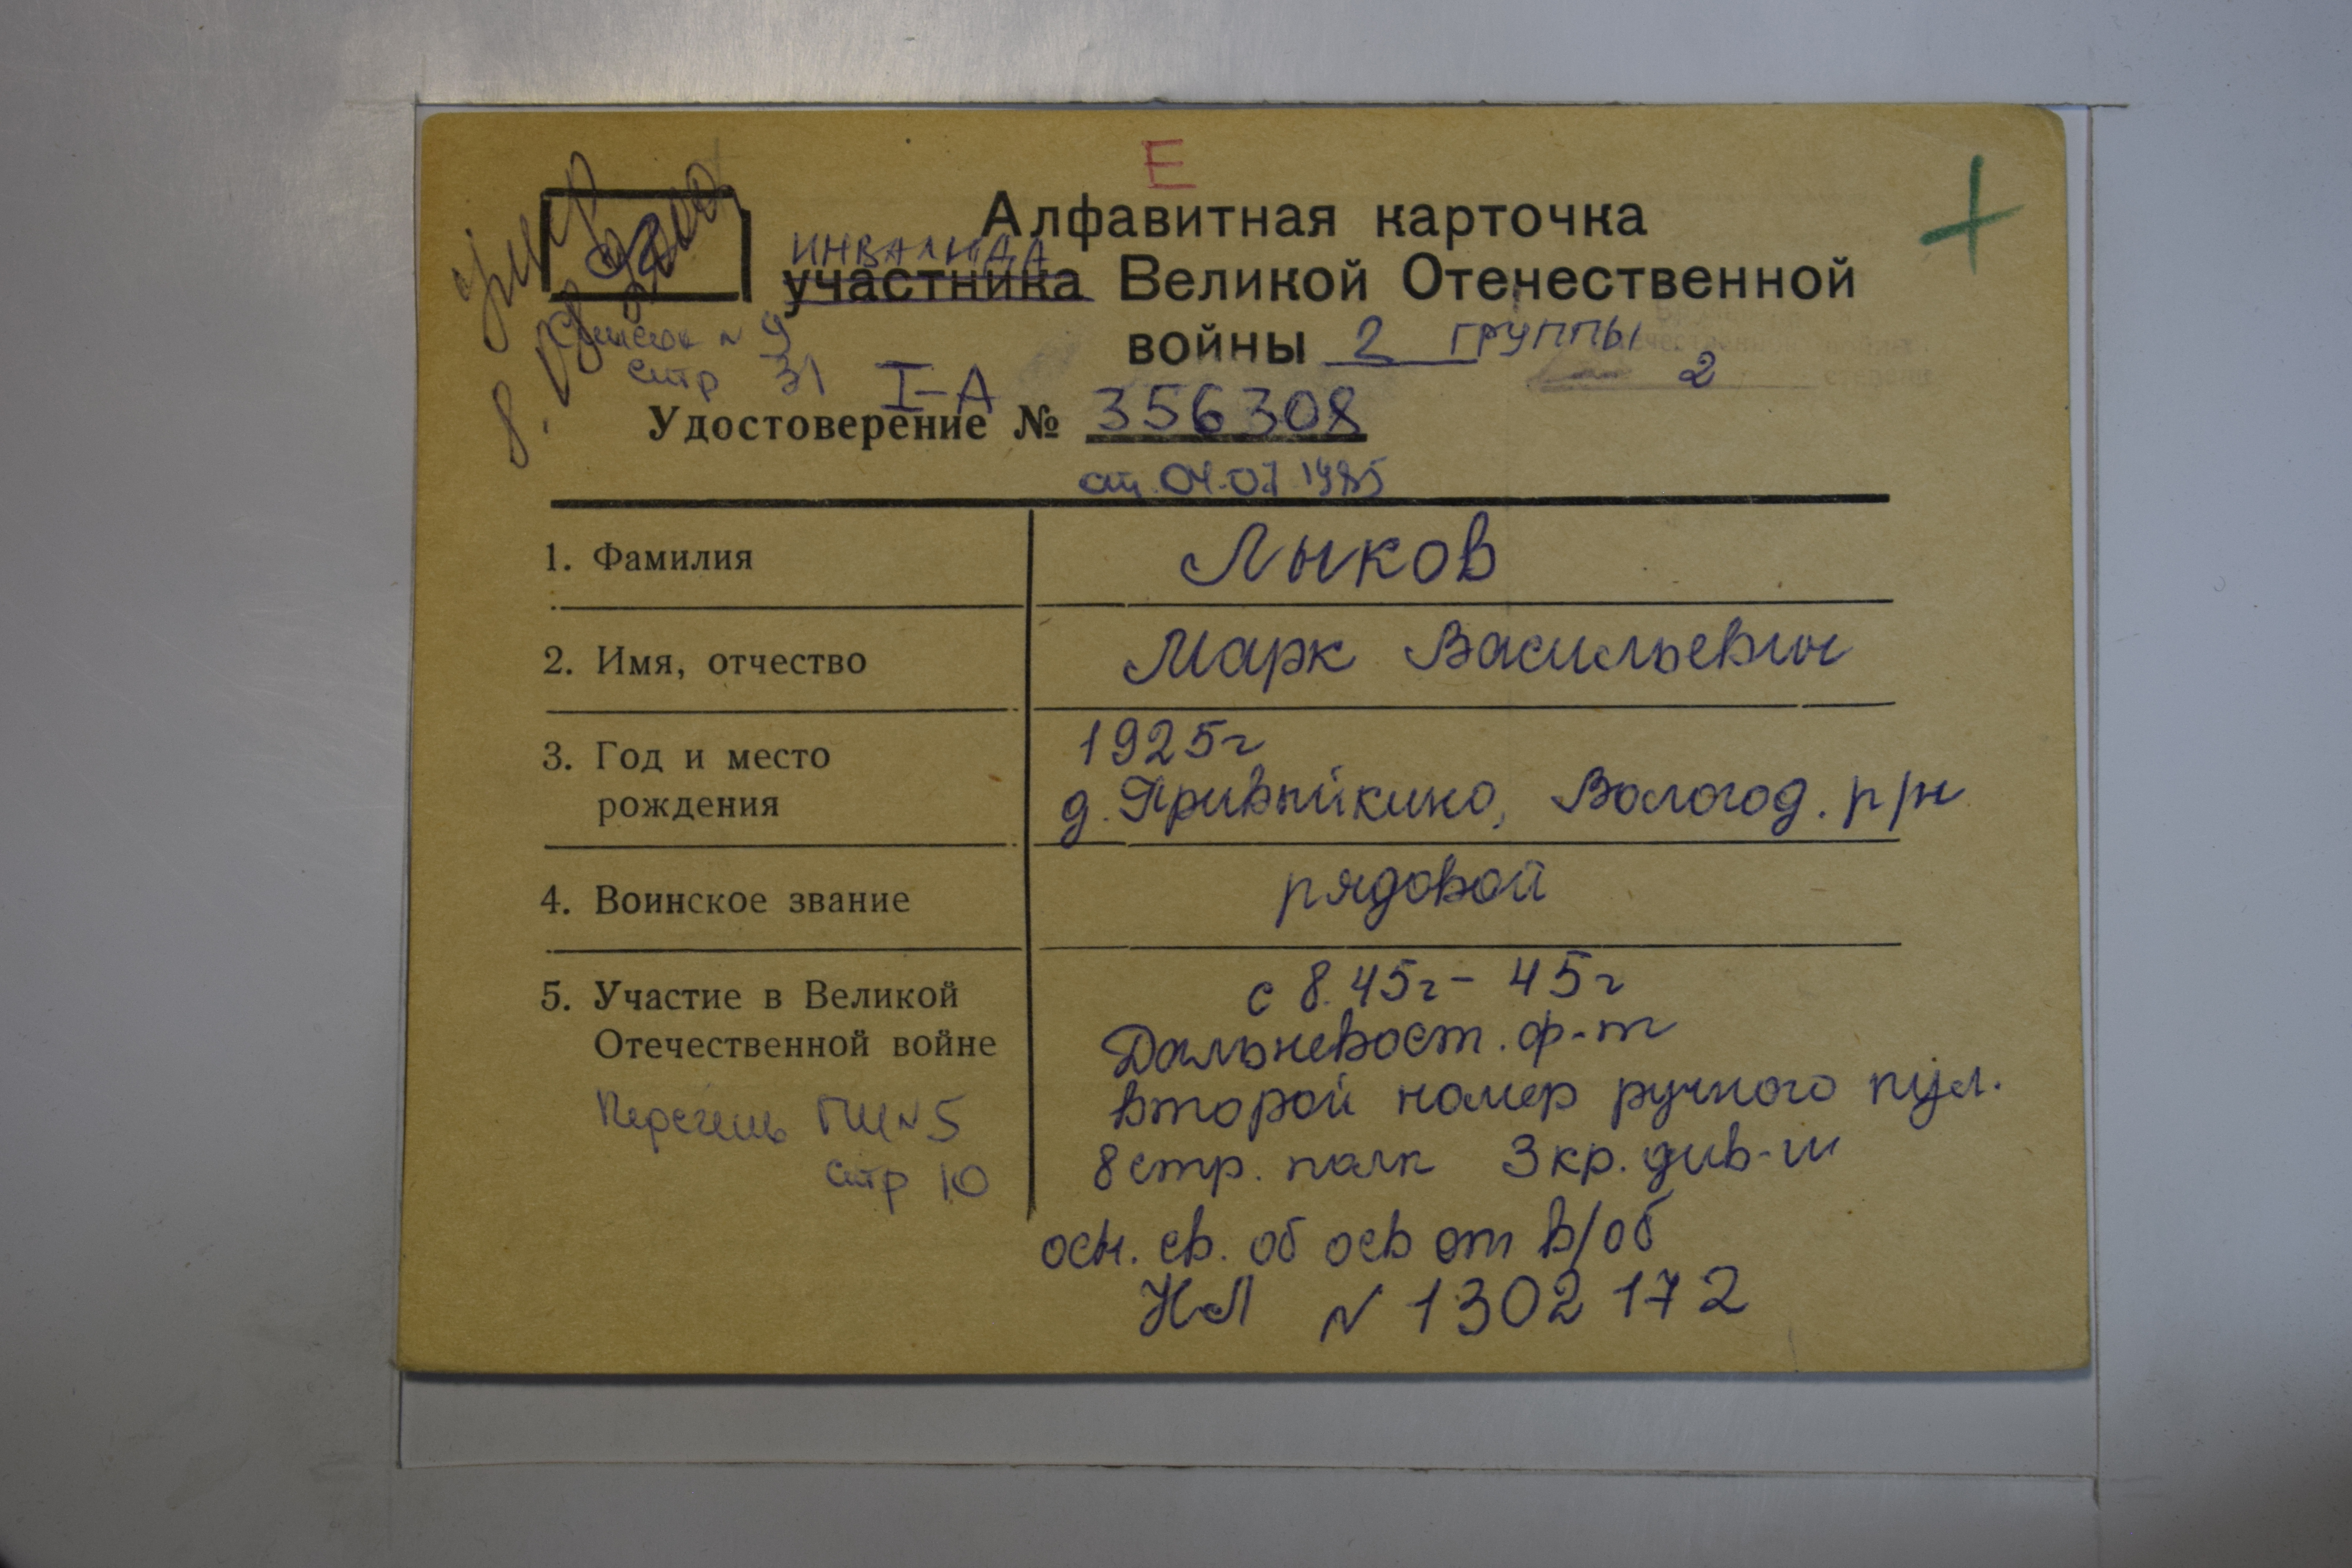 Е
Алфавитная карточка
инвалида
участника Великой Отечественной
войны 2 группы
2
Список N 9
стр 31
I-А
Удостоверение № 356308
от 04.07 1985
1. Фамилия Лыков
2. Имя, отчество Марк Васильевич
3. Год и место 1925г
рождения д. Привыйкино, Вологод. р/н
4. Воинское звание рядовой
5. Участие в Великой с 8.45г - 45г
Отечественной войне Дальневост. ф-т
второй номер ручного пул.
Перечень ГШ N 5 8 стр. полк 3 кр. див-ии
стр 10
осн. св. об осв от в/об
НЛ N 1302172